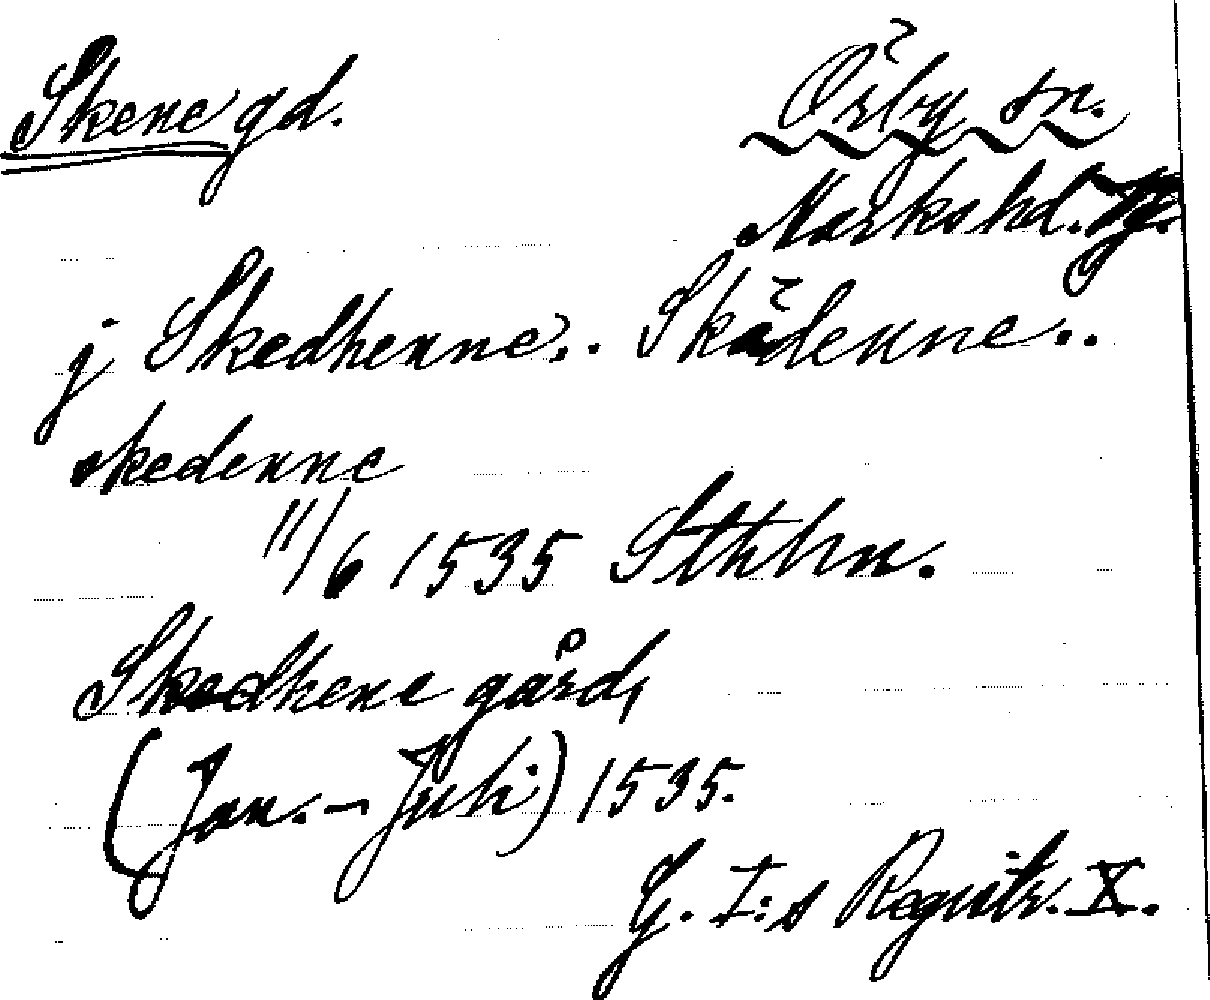 Skene gd.
Örby sn.
Marks hd. Vg.
j Skedhenne.. Skädenne..
skedenne
11/6 1535 Sthlm.
Skedhene gård,
(Jan. - Juli) 1535.
G. I:s Registr. X.